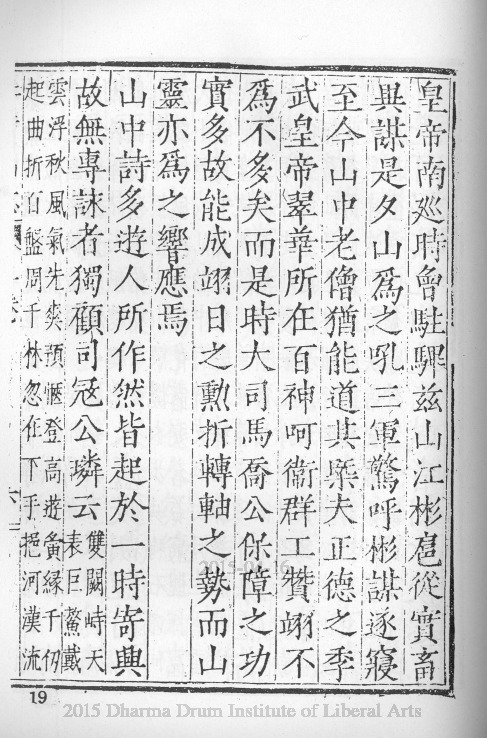 皇帝南廵時曾駐驆兹山江彬扈從實畜
異謀是夕山爲之吼三軍驚呼彬謀遂寢
至今山中老僧猶能道其槩夫正德之季
武皇帝翠華所在百神呵衞群工贊翊不
爲不多矣而是時大司馬喬公保障之功
實多故能成翊日之勳折轉軸之勢而山
靈亦爲之響應焉
山中詩多遊人所作然皆起於一時寄興
故無專詠者獨顧司冦公璘云雙闕峙天表巨鰲戴
雲浮秋風氣先奭預愜登高遊夤緣千仞
起曲折百盤周千林忽在下手挹河漢流
19
2015-04-16
2015 Dharma Drum Institute of Liberal Arts